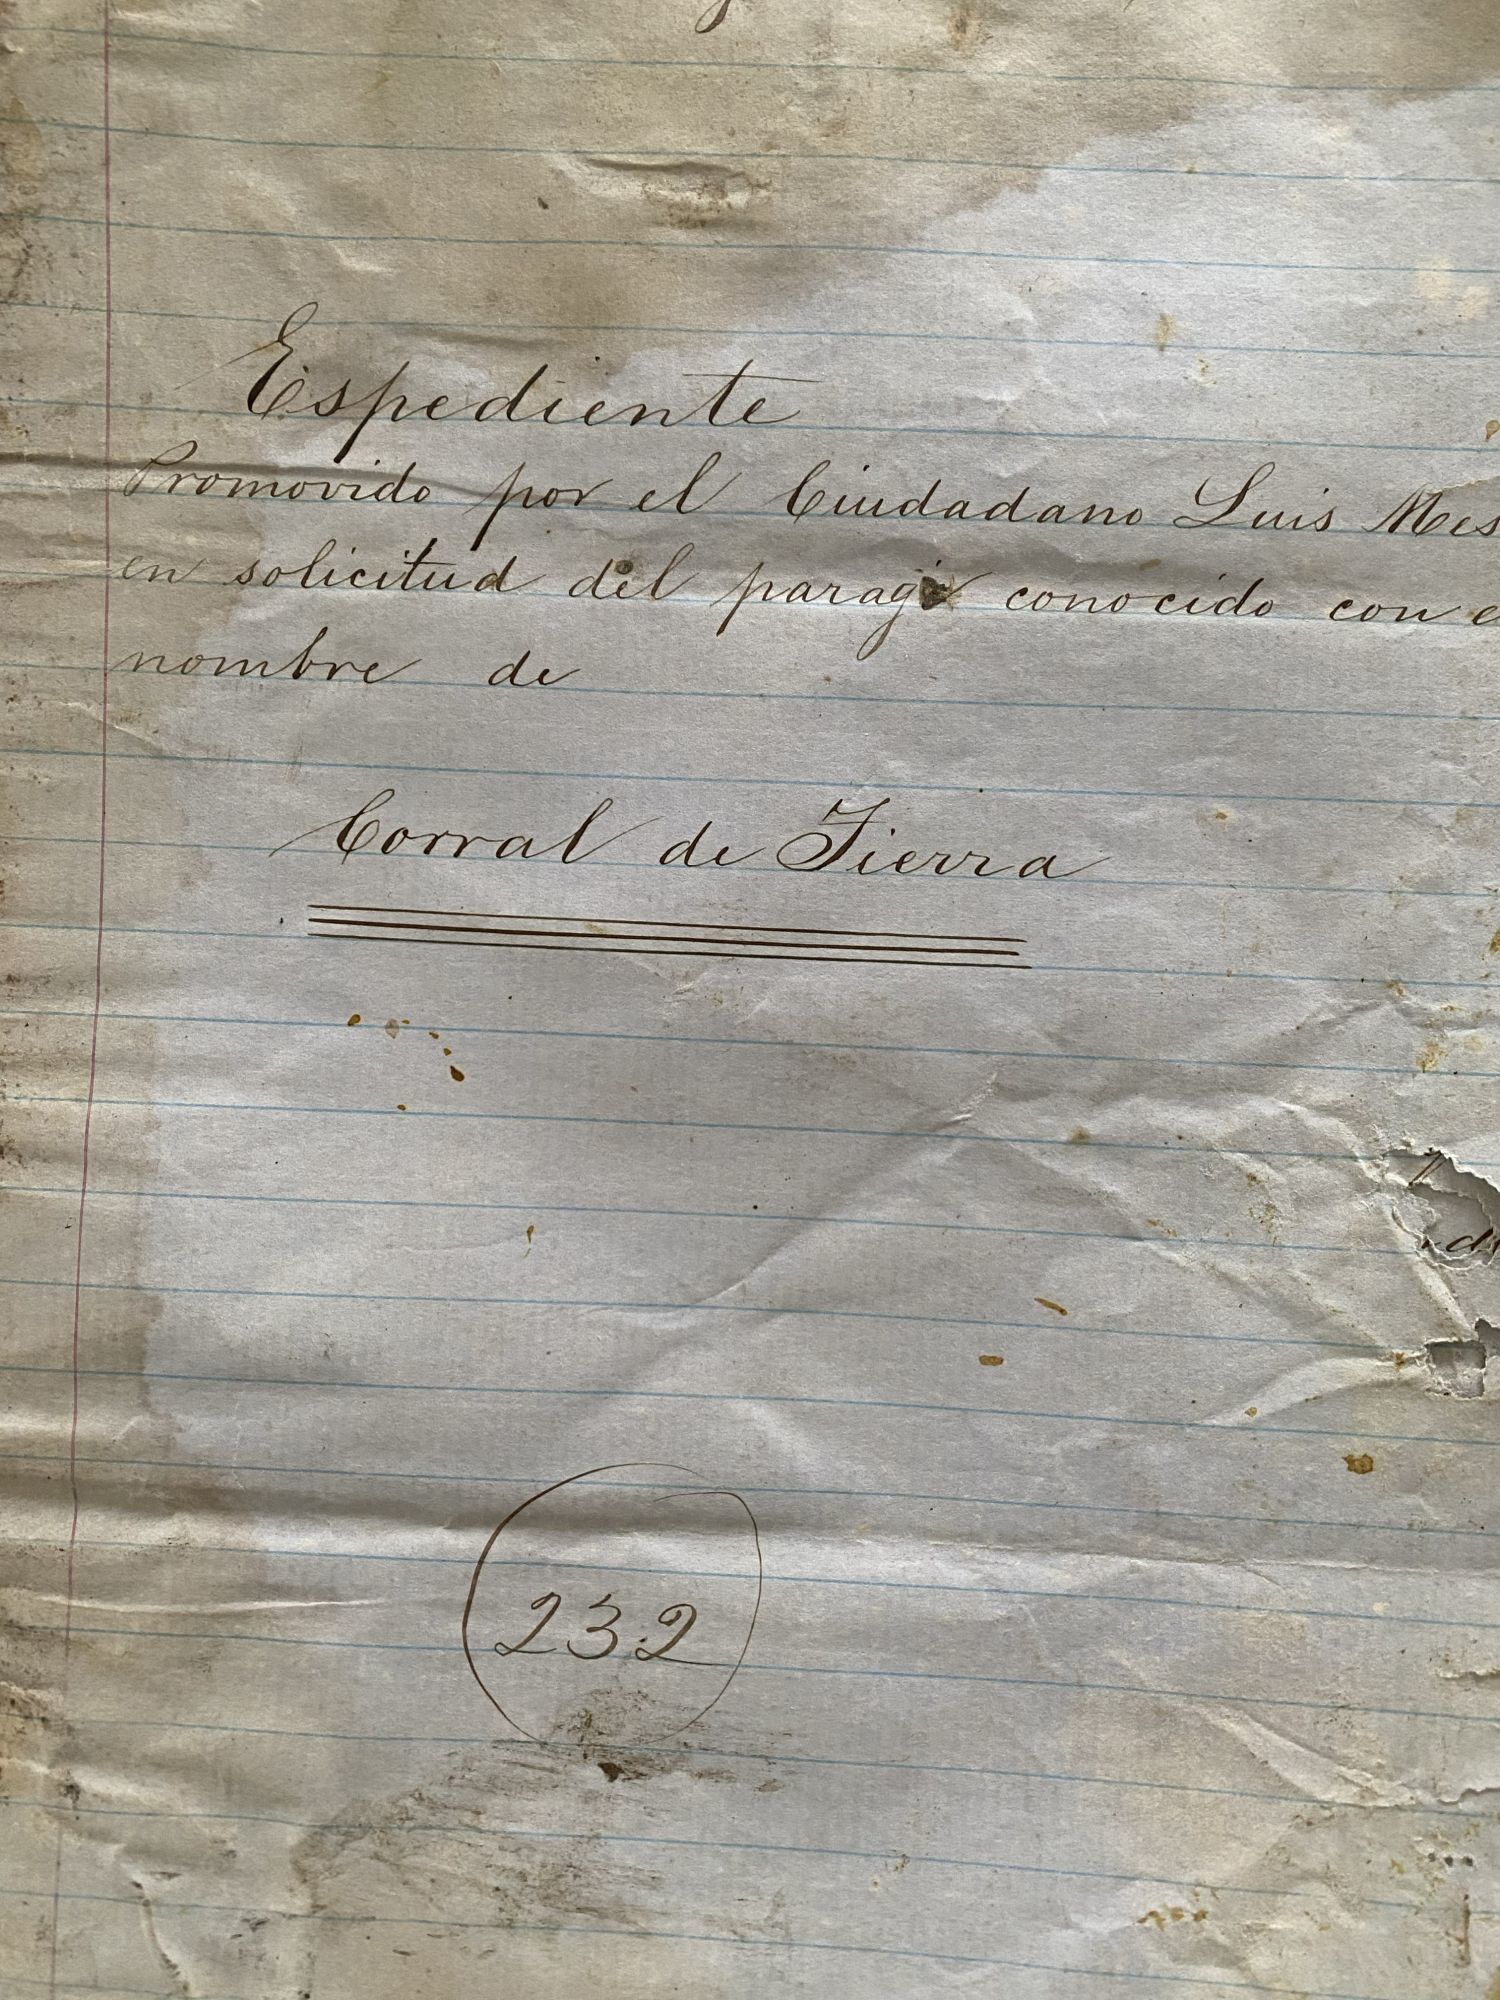 Espediente
Promovido por el Ciudadano Luis Mes
en solicitud del parage conocido con e
nombre de
Corral de Tierra
232